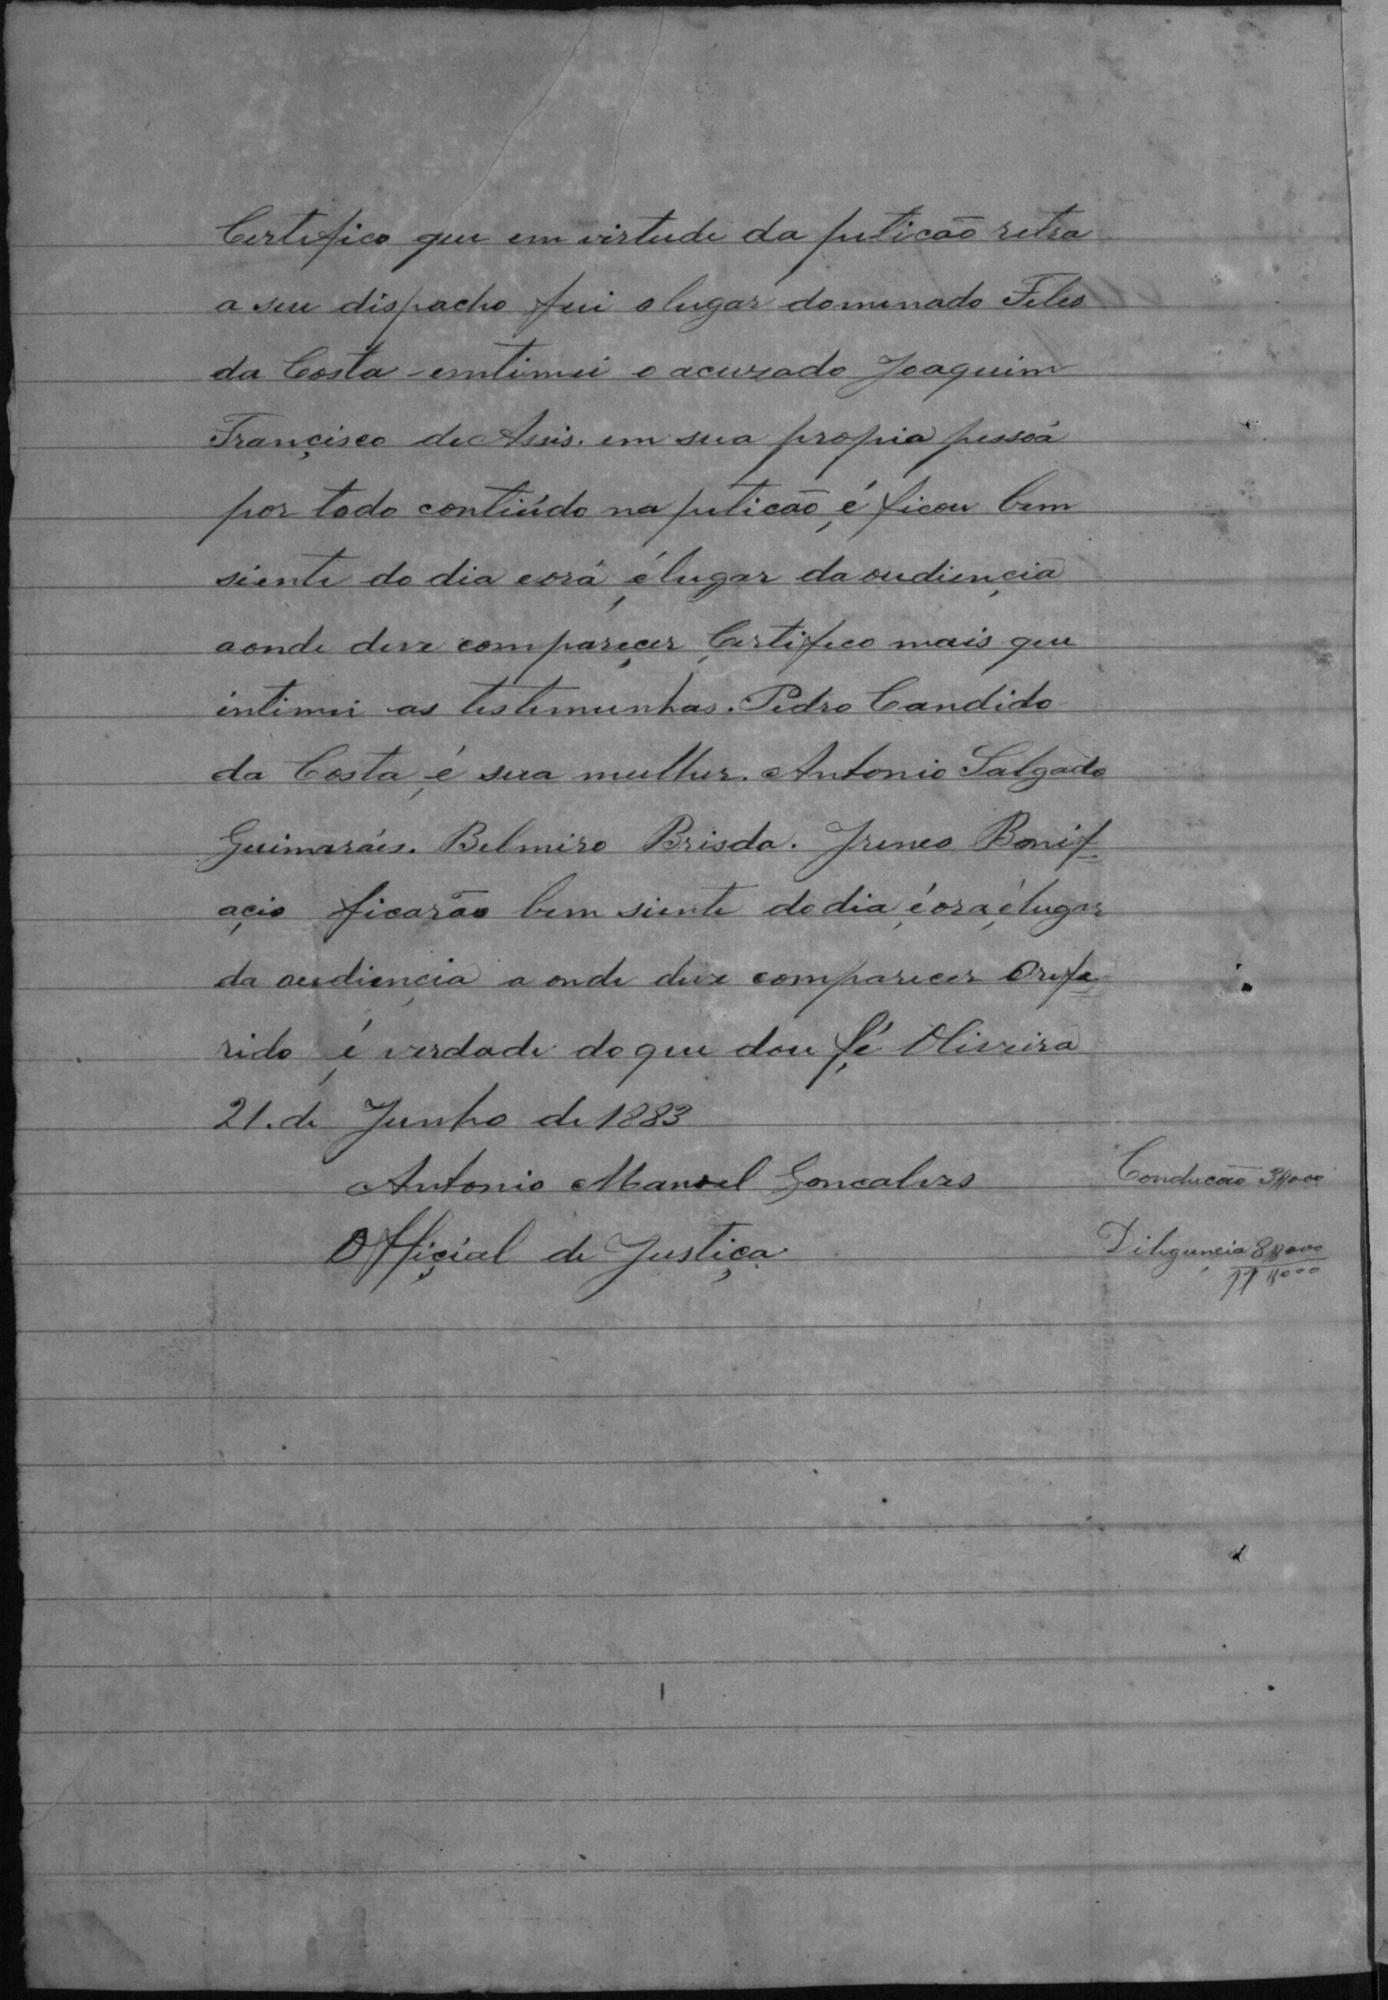 Certefico que em virtude da peticaõ retra
a seu dispacho fui o lugar domenado Teles
da Costa emtimei o acuzado Joaquim
Françisco de Assis. em sua propia pessoá
por todo contiúdo na peticaõ é ficou bem
siente do dia eorá é lugar da oudiençia
aonde deve compareçer Certifeco mais que
intimei as testemunhas. Pedro Candido
da Costa é sua mulher. Antonio Salgado
Guimaráis. Belmiro Brisda. Jreneo Bonif=
açio ficarão bem siente do dia é ora é lugar
da audiençia a onde deve comparecer Orefe=
rido é verdade do que dou fé Oliveira
21. de Junho de 1883
Antonio Manoel Goncalves
Conducaõ 3$000
Offiçial de Justiça
Diligençia 8$000
11$000